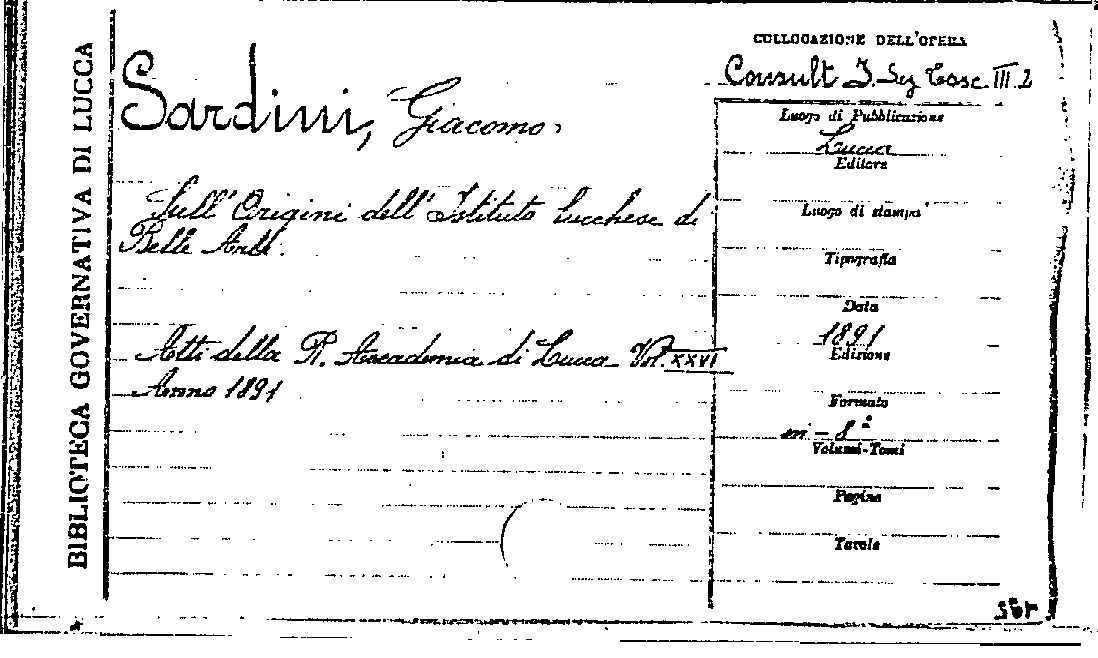 BIBLIOTECA GOVERNATIVA DI LUCCA
Sardini, Giacomo,
Sull' Origini dell' Istituto Lucchese di
Belle Arti.
Atti della R. Accademia di Lucca Vol. XXVI
Anno 1891
COLLOCAZIONE DELL'OPERA
Consult I. Sez Casc. III. 2
Luogo di Pubblicazione
Lucca
Editore
Luogo di stampa
Tipografia
Data
1891
Edizione
Formato
in - 8º
Volumi-Tomi
Pagine
Tavole